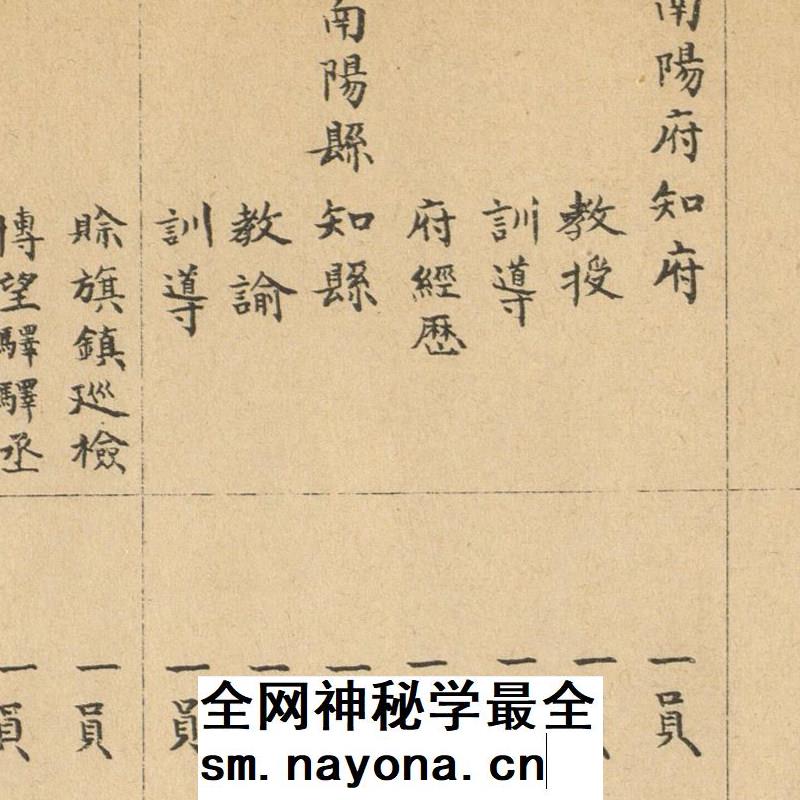 南陽府知府
教授
訓導
府經歷
南陽縣知縣
教諭
訓導
賒旗鎮巡檢
博望驛驛丞
一員
一
一
一
一
一
一員
一員
一員
全网神秘学最全
sm.nayona.cn